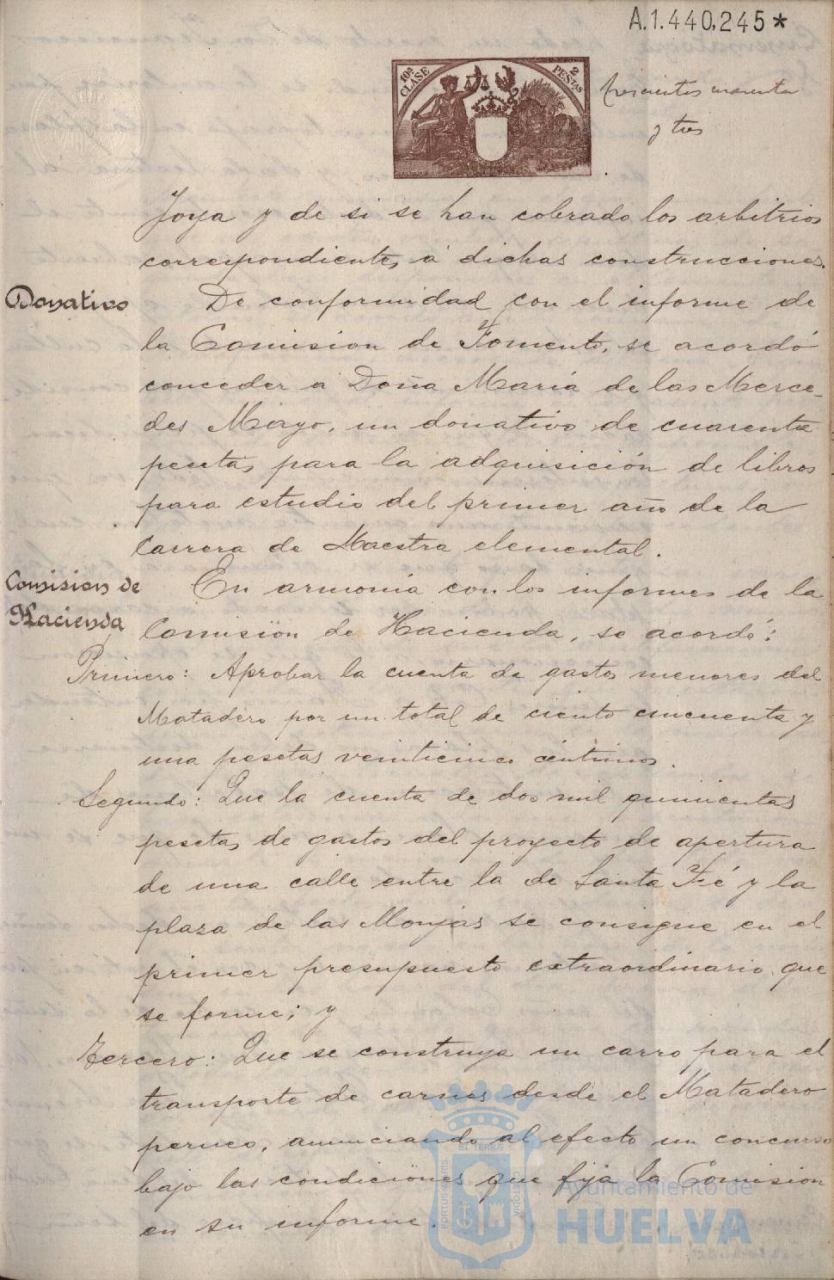 A.1.440.245*
10ª CLASE
2 PESETAS
trescientos cuarenta
y tres
Joya y de si se han cobrado los arbitrios
correspondientes á dichas construcciones.
Donativo
De conformidad con el informe de
la Comision de Fomento, se acordó
conceder a Doña María de las Merce-
des Mayo, un donativo de cuarenta
pesetas para la adquisición de libros
para estudio del primer año de la
Carrera de Maestra elemental.
Comision de
Hacienda
En armonía con los informes de la
Comision de Hacienda, se acordó:
Primero: Aprobar la cuenta de gastos menores del
Matadero por un total de ciento cincuenta y
una pesetas veinticinco céntimos.
Segundo: Que la cuenta de dos mil quinientas
pesetas de gastos del proyecto de apertura
de una calle entre la de Santa Fé y la
plaza de las Monjas se consigne en el
primer presupuesto extraordinario que
se forme; y
Tercero: Que se construya un carro para el
transporte de carnes desde el Matadero
anunciando al efecto un concurso
bajo las condiciones que fija la Comision
en su informe.
Ayuntamiento de
HUELVA